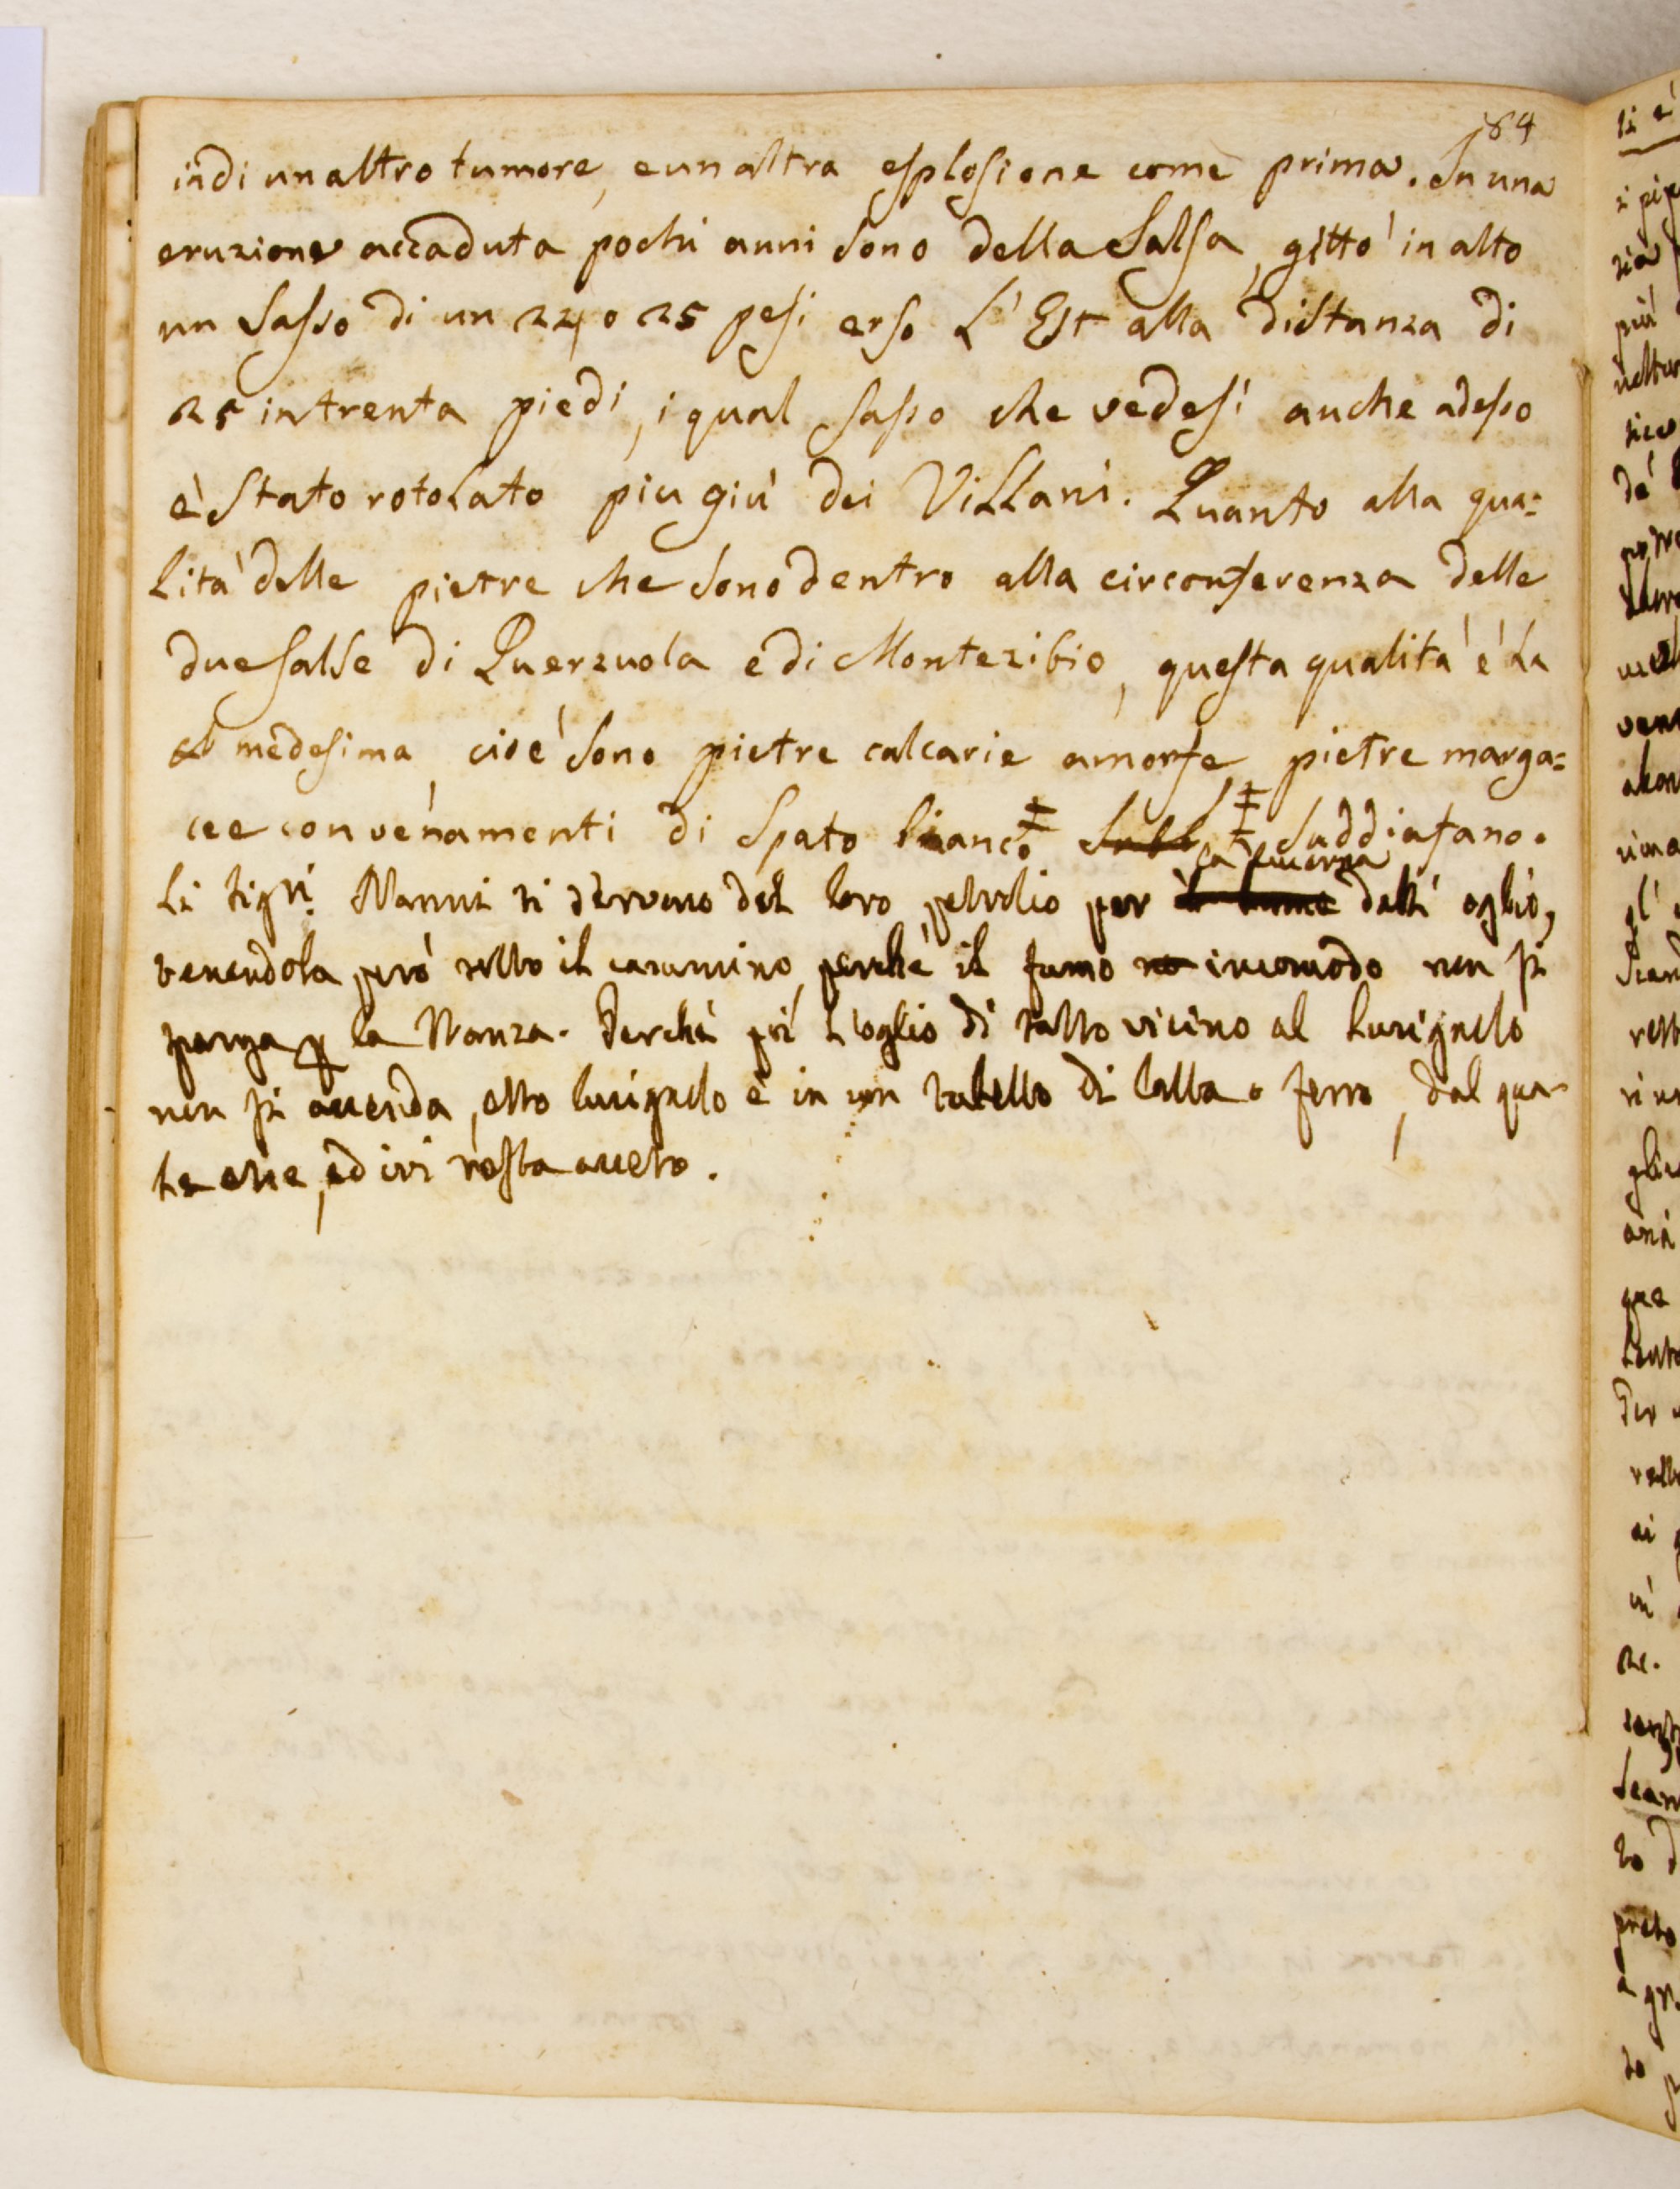 184
indi unaltro tumore, e un altra esplosione come prima. In una
eruzione accaduta pochi anni sono della Salsa, gittò in alto
un Sasso di un 24 o 25 pesi erso L'Est alla distanza di
25 in trenta piedi, i qual sasso che vedesi anche adesso
è Stato rotolato piu giù dei Villani. Quanto alla qua=
lità delle pietre che sono dentro alla circonferenza delle
due salse di Querzuola e di Montezibio, questa qualità è la
medesima, cioè sono pietre calcarie amorfe, pietre marga=
cee con venamenti di Spato bianco ‡ ‡ Suddiafano.
li Sigri Nanni si servono del loro petrolio per il lume la lucerna dell' oglio,
tenendola però sotto il cammino, perchè il fumo no incomodo non si
sparga p la Stanza. Perchè poi l'oglio di sasso vicino al lucignolo
non si accenda, esso lucignolo è in un tubetto di latta o ferro, dal qua=
le esce, ed ivi resta acceso.